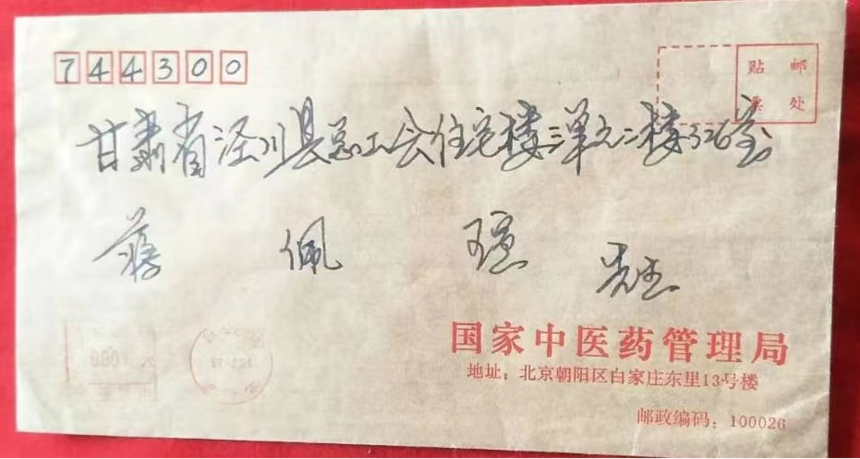 744300
贴 邮
票 处
甘肃省泾川县总工会住宅楼三单元二楼326室
蒋佩瑄 先生
国家中医药管理局
地址：北京朝阳区白家庄东里13号楼
邮政编码：100026